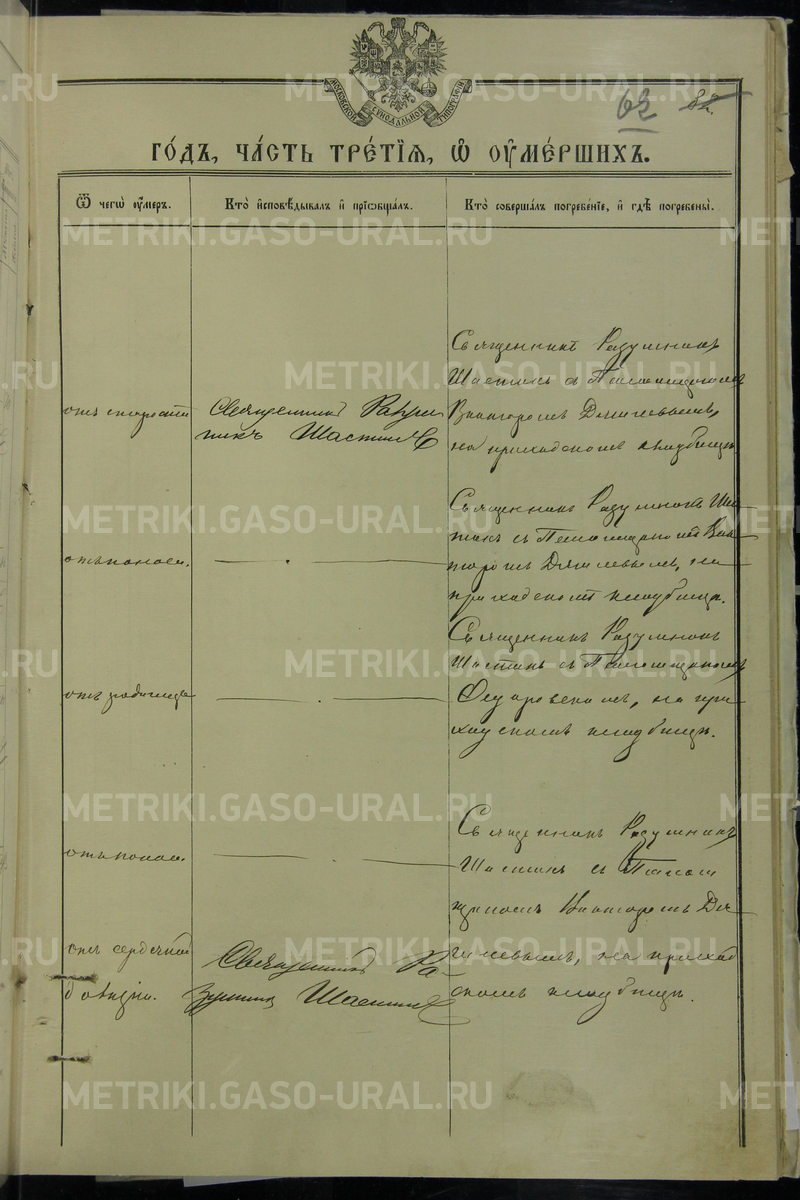 МОСКОВСКОЙ СѴНОДАЛЬНОЙ ТИПОГРАФІИ
62 82
ГО́ДЪ, ЧА́СТЬ ТРЕ́ТІѦ, Ѡ҆ ОУ҆МЕ́РШИХЪ.
Ѿ чегѡ̀ оу҆́меръ.
Кто̀ и҆сповѣ́дывалъ и҆ прїѡбща́лъ.
Кто̀ соверша́лъ погребе́нїе, и҆ гдѣ̀ погребены̀.
отъ старости
Священникъ Разум
никъ Шастинъ
Священникъ Разумникъ
Шастинъ съ Псаломщикомъ
Викторомъ
на приходскомъ кладбищѣ.
отъ поноса.
Священникъ Разумникъ Ша
стинъ съ Псаломщикомъ Вик
торомъ на
приходскомъ кладбищѣ.
отъ родимца
Священникъ Разумникъ
Шастинъ съ Псаломщикомъ
на при
ходскомъ кладбищѣ.
отъ поноса.
Священникъ Разумникъ
Шастинъ съ Псалом
щикомъ Викторомъ
на приход
скомъ кладбищѣ.
отъ сердечной
болѣзни.
Священникъ Ра
зумникъ Шастинъ
METRIKI.GASO-URAL.RU